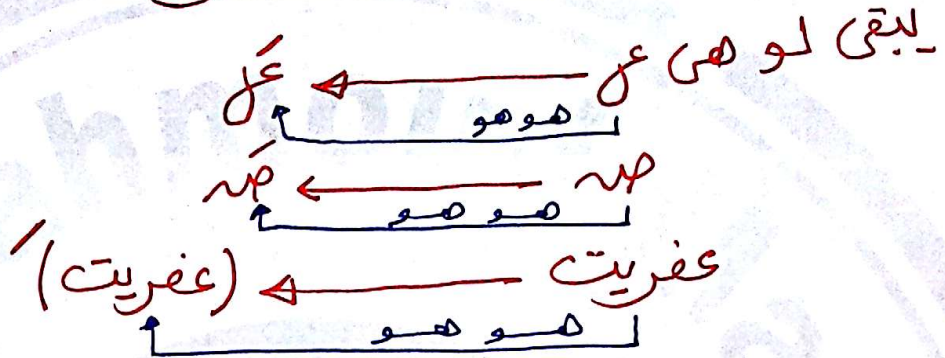 يبقى لو هى ع ← عَ
هو هو
ص ← صَ
هو هو
عفريت ← (عفريت)َ
هو هو